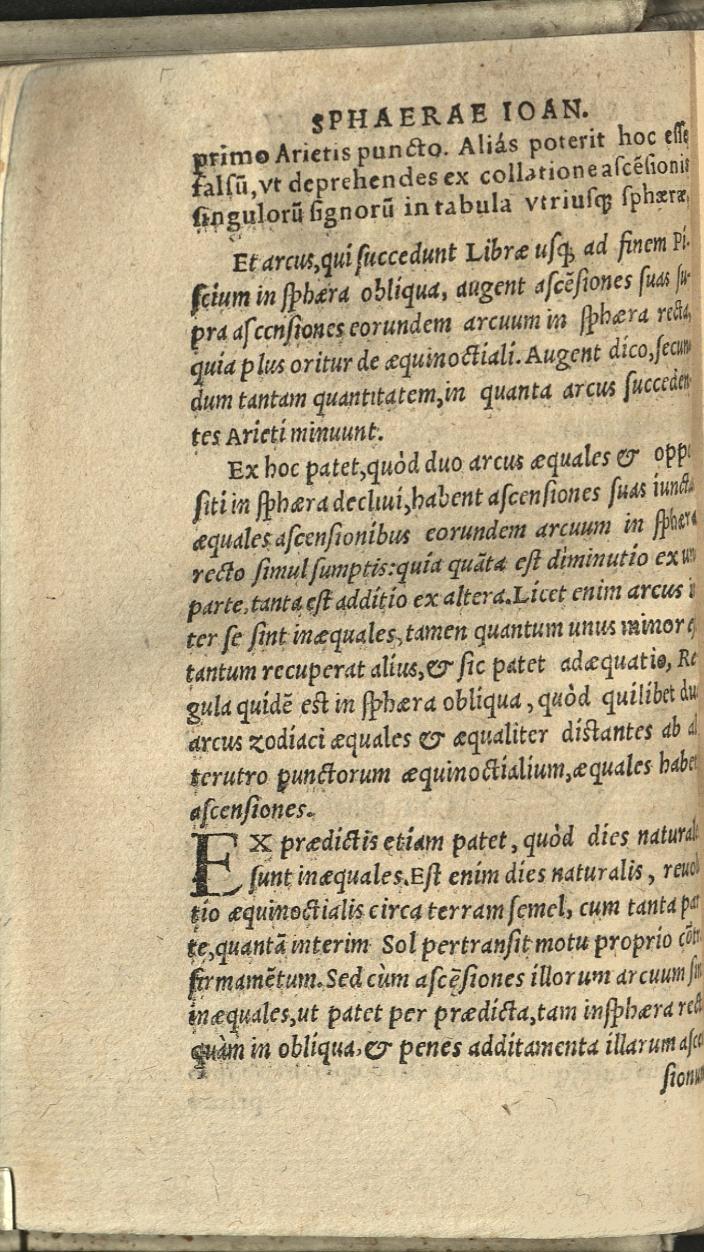 SPHAERAE IOAN.
primo Arietis puncto. Aliás poterit hoc esse
falsũ, vt deprehendes ex collatione ascẽsionis
singulorũ signorũ in tabula vtriusq; sphæræ,
Et arcus, qui succedunt Libræ usq; ad finem Pi-
scium in sphæra obliqua, augent ascẽsiones suas su-
pra ascensiones eorundem arcuum in sphæra recta,
quia plus oritur de æquinoctiali. Augent dico, secun
dum tantam quantitatem, in quanta arcus succeden
tes Arieti minuunt.
Ex hoc patet, quòd duo arcus æquales & oppo
siti in sphæra decliui, habent ascensiones suas iunctas
æquales ascensionibus eorundem arcuum in sphæra
recto simul sumptis: quia quãta est diminutio ex un
parte, tanta est additio ex altera. Licet enim arcus i
ter se sint inæquales, tamen quantum unus minor e
tantum recuperat alius, & sic patet adæquatio, Re
gula quidẽ est in sphæra obliqua, quòd quilibet du
arcus zodiaci æquales & æqualiter distantes ab al
terutro punctorum æquinoctialium, æquales habe
ascensiones.
EX prædictis etiam patet, quòd dies natural
sunt inæquales. Est enim dies naturalis, reuol
tio æquinoctialis circa terram semel, cum tanta par
te, quantã interim Sol pertransit motu proprio cõtr
firmamẽtum. Sed cùm ascẽsiones illorum arcuum sin
inæquales, ut patet per prædicta, tam insphæra rect
quàm in obliqua, & penes additamenta illarum asce
sionum